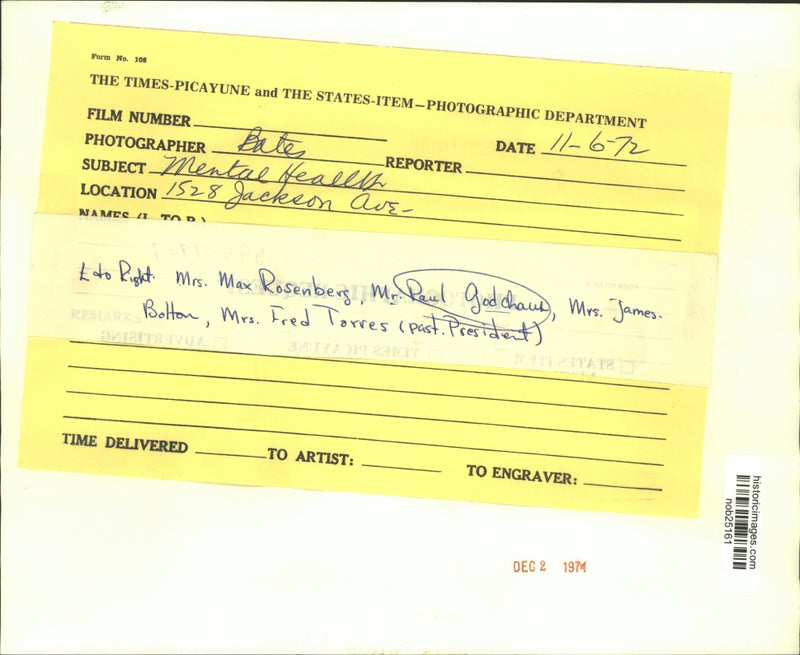 Form No. 108
THE TIMES-PICAYUNE and THE STATES-ITEM—PHOTOGRAPHIC DEPARTMENT
FILM NUMBER
PHOTOGRAPHER Bates REPORTER DATE 11-6-72
SUBJECT Mental Health
LOCATION 1528 Jackson Ave-
NAMES (L. TO R.)
L to Right. Mrs. Max Rosenberg, Mr. Paul Godchaux, Mrs. James.
Bolton, Mrs. Fred Torres (past. President)
REMARKS
ADVERTISING TIMES-PICAYUNE STATES-ITEM
TIME DELIVERED TO ARTIST: TO ENGRAVER:
DEC 2 1974
historicimages.com
nob25161